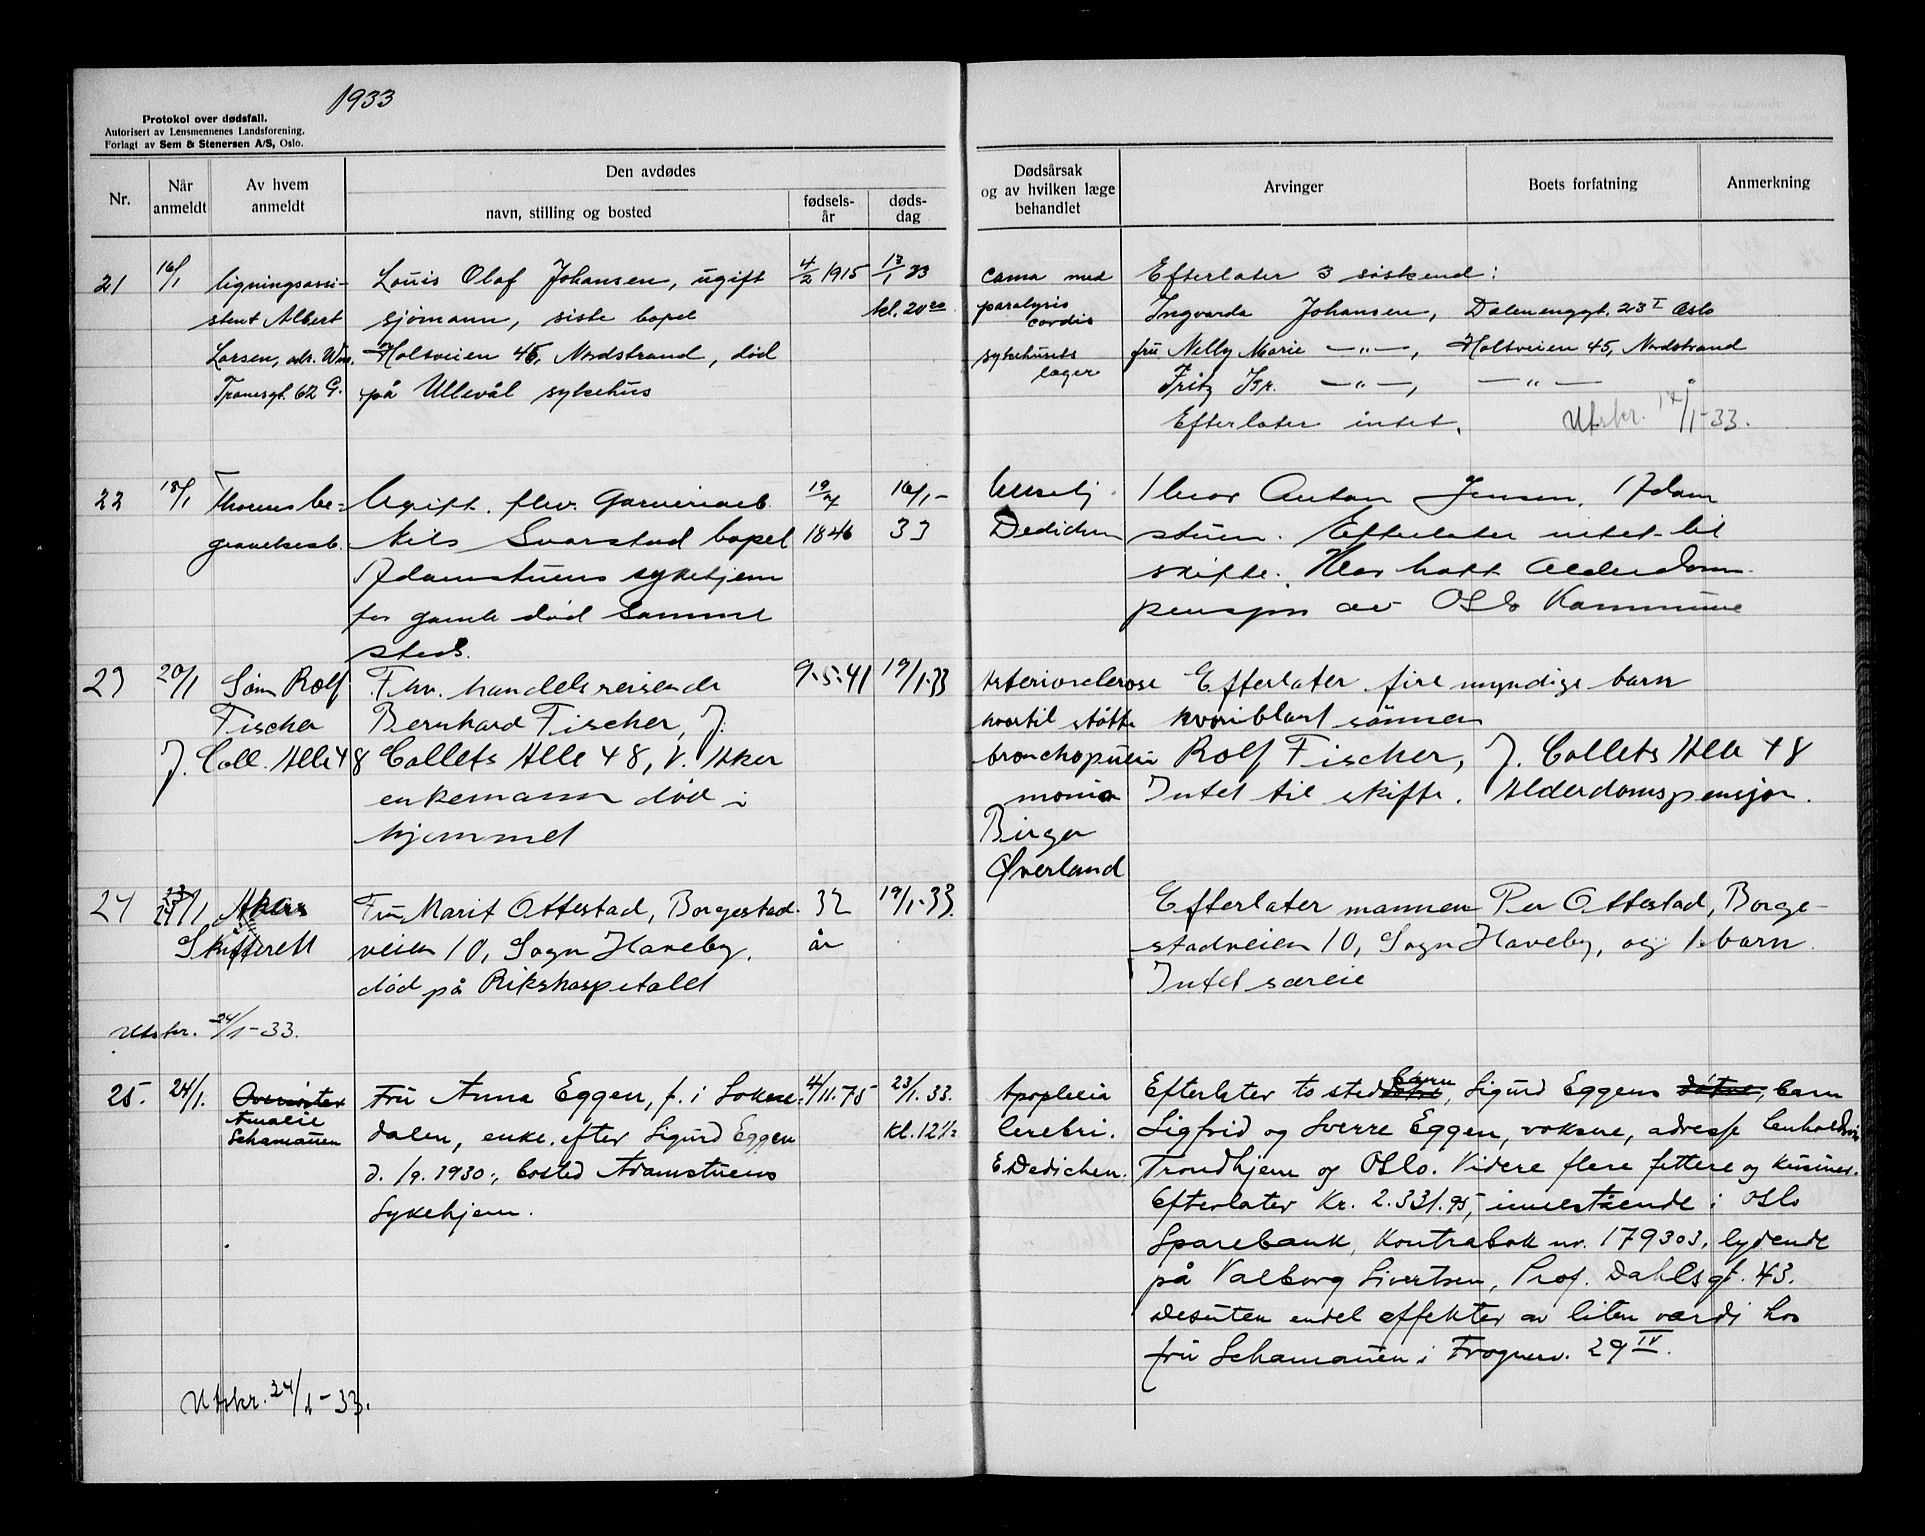 1933
Protokol over dødsfall.
Autorisert av Lensmennenes Landsforening.
Forlagt av Sem & Stenersen A/S, Oslo.
Nr.
Når anmeldt
Av hvem anmeldt
Den avdødes
navn, stilling og bosted
fødsels-år
døds-dag
Dødsårsak og av hvilken læge behandlet
Arvinger
Boets forfatning
Anmerkning
21
16/1
ligningsassi-
stent Albert
Larsen, adr. Wm.
Tranesgt. 62 G.
Louis Olaf Johansen, ugift
sjømann, siste bopel
Holtsveien 45, Nordstrand, død
på Ullevål sykehus
4/2 1915
13/1 33
kl. 20
med
paralysis
cordis
sykehusets
læger
Efterlater 3 søskend:
Ingvarda Johansen, Dælenenggt. 23 I Oslo
fru Nelly Marie —"—, Holtsveien 45, Nordstrand
Fritz Kr. —"—, —"—
Efterlater intet.
Utskr. 17/1-33.
22
18/1
Thorens be-
gravelsesb.
Ugift. fhv. Garveriarb.
Nils Svarstad bopel
Adamstuens sykehjem
for gamle død samme
steds.
19/7
1846
16/1-
33
Dedichen
Anton Jensen, Adam
stuen. Efterlater intet til
skifte. Har hatt Alderdoms
pensjon av Oslo Kommune
23
20/1
Søn Rolf
Fischer
J. Coll. Alle 48
Fhv. handelsreisende
Bernhard Fischer, J.
Collets Alle 48, V. Aker
enkemann død i
hjemmet
9-5-41
19/1-33
Arteriosclerose
hvortil støtte
bronchopneu
monia
Birger
Øverland
Efterlater fire myndige barn
hvoriblant sønnen
Rolf Fischer, J. Collets Alle 48
Intet til skifte. Alderdomspensjon.
24
23/1
24/1
Akers
Skifterett
Fru Marit Ottestad, Borgestad-
veien 10, Sogn Haveby,
død på Rikshospitalet
32
år
19/1-33.
Efterlater mannen Per Ottestad, Borge-
stadveien 10, Sogn Haveby, og 1 barn.
Intet særeie
Utskr. 24/1-33.
25.
24/1.
Amalie
Schamaűen
Fru Anna Eggen, f. i Lokne-
dalen, enke efter Sigurd Eggen
d. 1/9. 1930, bosted Adamstuens
Sykehjem.
4/11.75
23/1.33.
kl. 12½
Apoplexia
cerebri.
E Dedichen.
Efterlater to sted barn, Sigurd Eggens døtre, barn
Sigfrid og Sverre Eggen, voksne, adresse
Trondhjem og Oslo. Videre flere fettere og kusiner.
Efterlater Kr. 2.331.95, innestående i Oslo
Sparebank, Kontrabok nr. 179303, lydende
på Valborg Sivertsen, Prof. Dahlsgt. 43.
Desuten endel effekter av liten værdi hos
fru Schamaűen i Frognerv. 29 IV.
Utskr. 24/1-33.